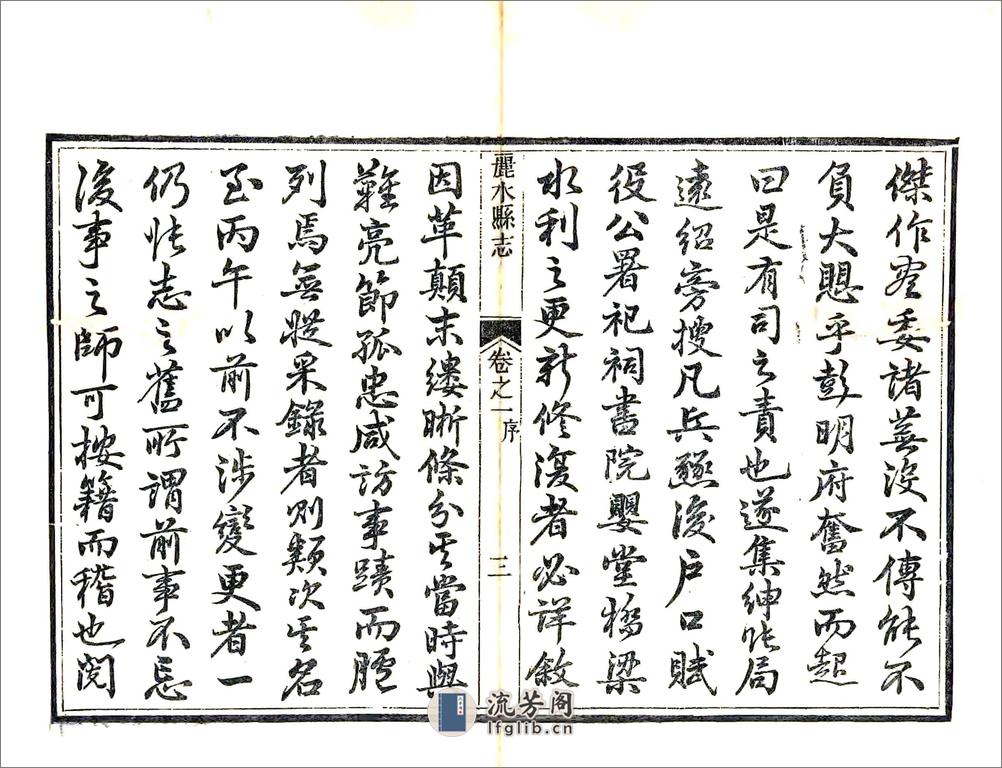 傑作虛委諸蕪沒不傳能不
負大懸乎彭明府奮然而起
曰是有司之責也遂集紳設局
遠紹旁搜凡兵燹後戶口賦
役公署祀祠書院嬰堂橋梁
水利之更新修復者必詳敘
麗水縣志
卷之一
序
三
因革顛末縷晰條分其當時與
難亮節孤忠咸訪事蹟而臚
列焉無從采錄者則類次其名
至丙午以前不涉變更者一
仍悵志之舊所謂前事不忘
後事之師可按籍而稽也閱
流芳阁
lfglib.cn